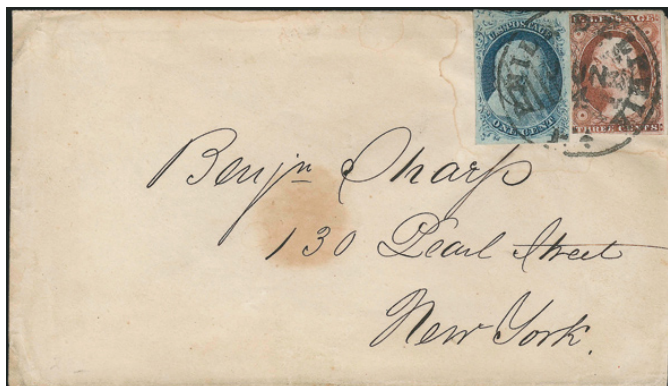 U.S. POSTAGE
ONE CENT
THREE CENTS
PHIL
JUN
Benjn Sharp
130 Pearl Street
New York.